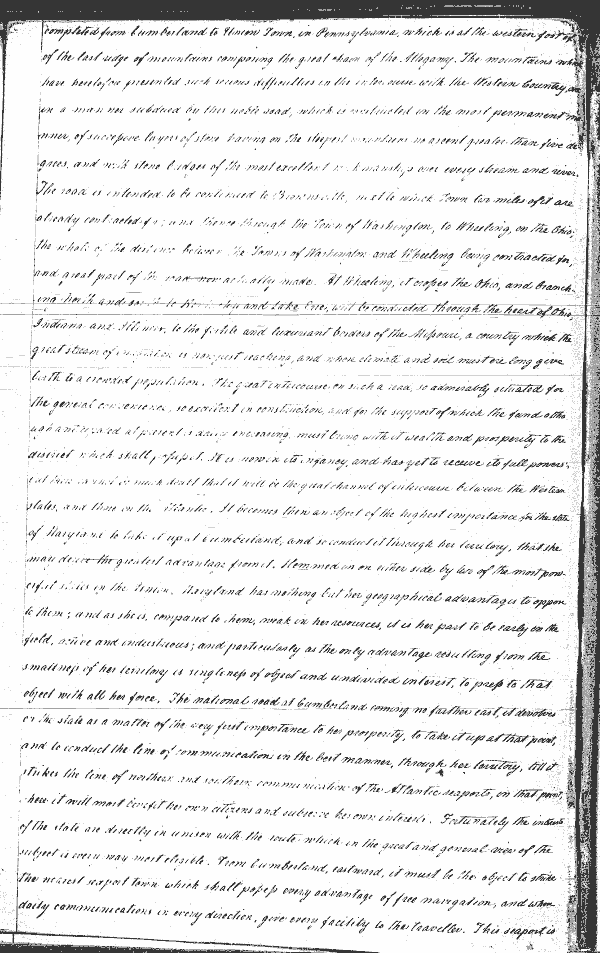 completed from Cumberland to Union Town, in Pennsylvania, which is at the western foot of
of the last ridge of mountains composing the great chain of the Allegany. The mountains which
have heretofore presented such serious difficulties in the intercourse with the Western Country, are
in a manner subdued by this noble road, which is constructed in the most permanent ma
nner, of successive layers of stone having on the steepest mountains no ascent greater than five de
grees, and with stone bridges of the most excellent workmanship over every stream and river.
The road is intended to be continued to Brownsville, near to which Town two miles of it are
already contracted for; and thence through the Town of Washington, to Wheeling, on the Ohio
the whole of the distance between the Towns of Washington and Wheeling being contracted for,
and great part of the road now actually made. At Wheeling, it crosses the Ohio, and branch
ing north and south to and Lake Erie, will be conducted through the heart of Ohio,
Indiana and Illinois, to the fertile and luxuriant borders of the Missouri, a country which the
great stream of emigration is now just reaching, and whose climate and soil must ere long give
birth to a crowded population. The great intercourse on such a road, so admirably situated for
the general convenience, so excellent in construction, and for the support of which the fund altho
ugh at present is daily increasing, must bring with it wealth and prosperity to the
district which shall possess it. It is now in its infancy, and has yet to receive its full powers.
but there cannot be much doubt that it will be the great channel of intercourse between the Western
states, and those on the Atlantic. It becomes then an object of the highest importance for the state
of Maryland to take it up at Cumberland, and so conduct it through her territory, that she
may derive the greatest advantage from it. Hemmed in on either side by two of the most pow
erful states in the Union. Maryland has nothing but her geographical advantages to oppose
to them; and as she is, compared to them, weak in her resources, it is her part to be early in the
field, active and industrious; and particularly as the only advantage resulting from the
smallness of her territory is singleness of object and undivided interest, to press to that
object with all her force. The national road at Cumberland coming no farther east, it devolves
on the state as a matter of the very first importance to her prosperity, to take it up at that point,
and to conduct the line of communication in the best manner, through her territory, till it
strikes the line of northern and southern communication of the Atlantic seaports, on that point,
where it will most benefit her own citizens and subserve her own interests. Fortunately the interests
of the state are directly in unison with the route, which in the great and general view of the
subject is every way most eligible. From Cumberland, eastward, it must be the object to strike
the nearest seaport town which shall possess every advantage of free navigation, and whose
daily communications in every direction, give every facility to the traveller. This seaport is